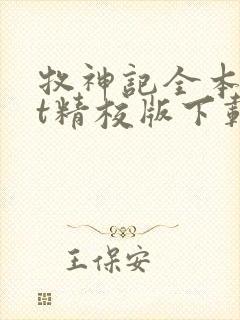 牧神記全本
t精校版下載
王保安